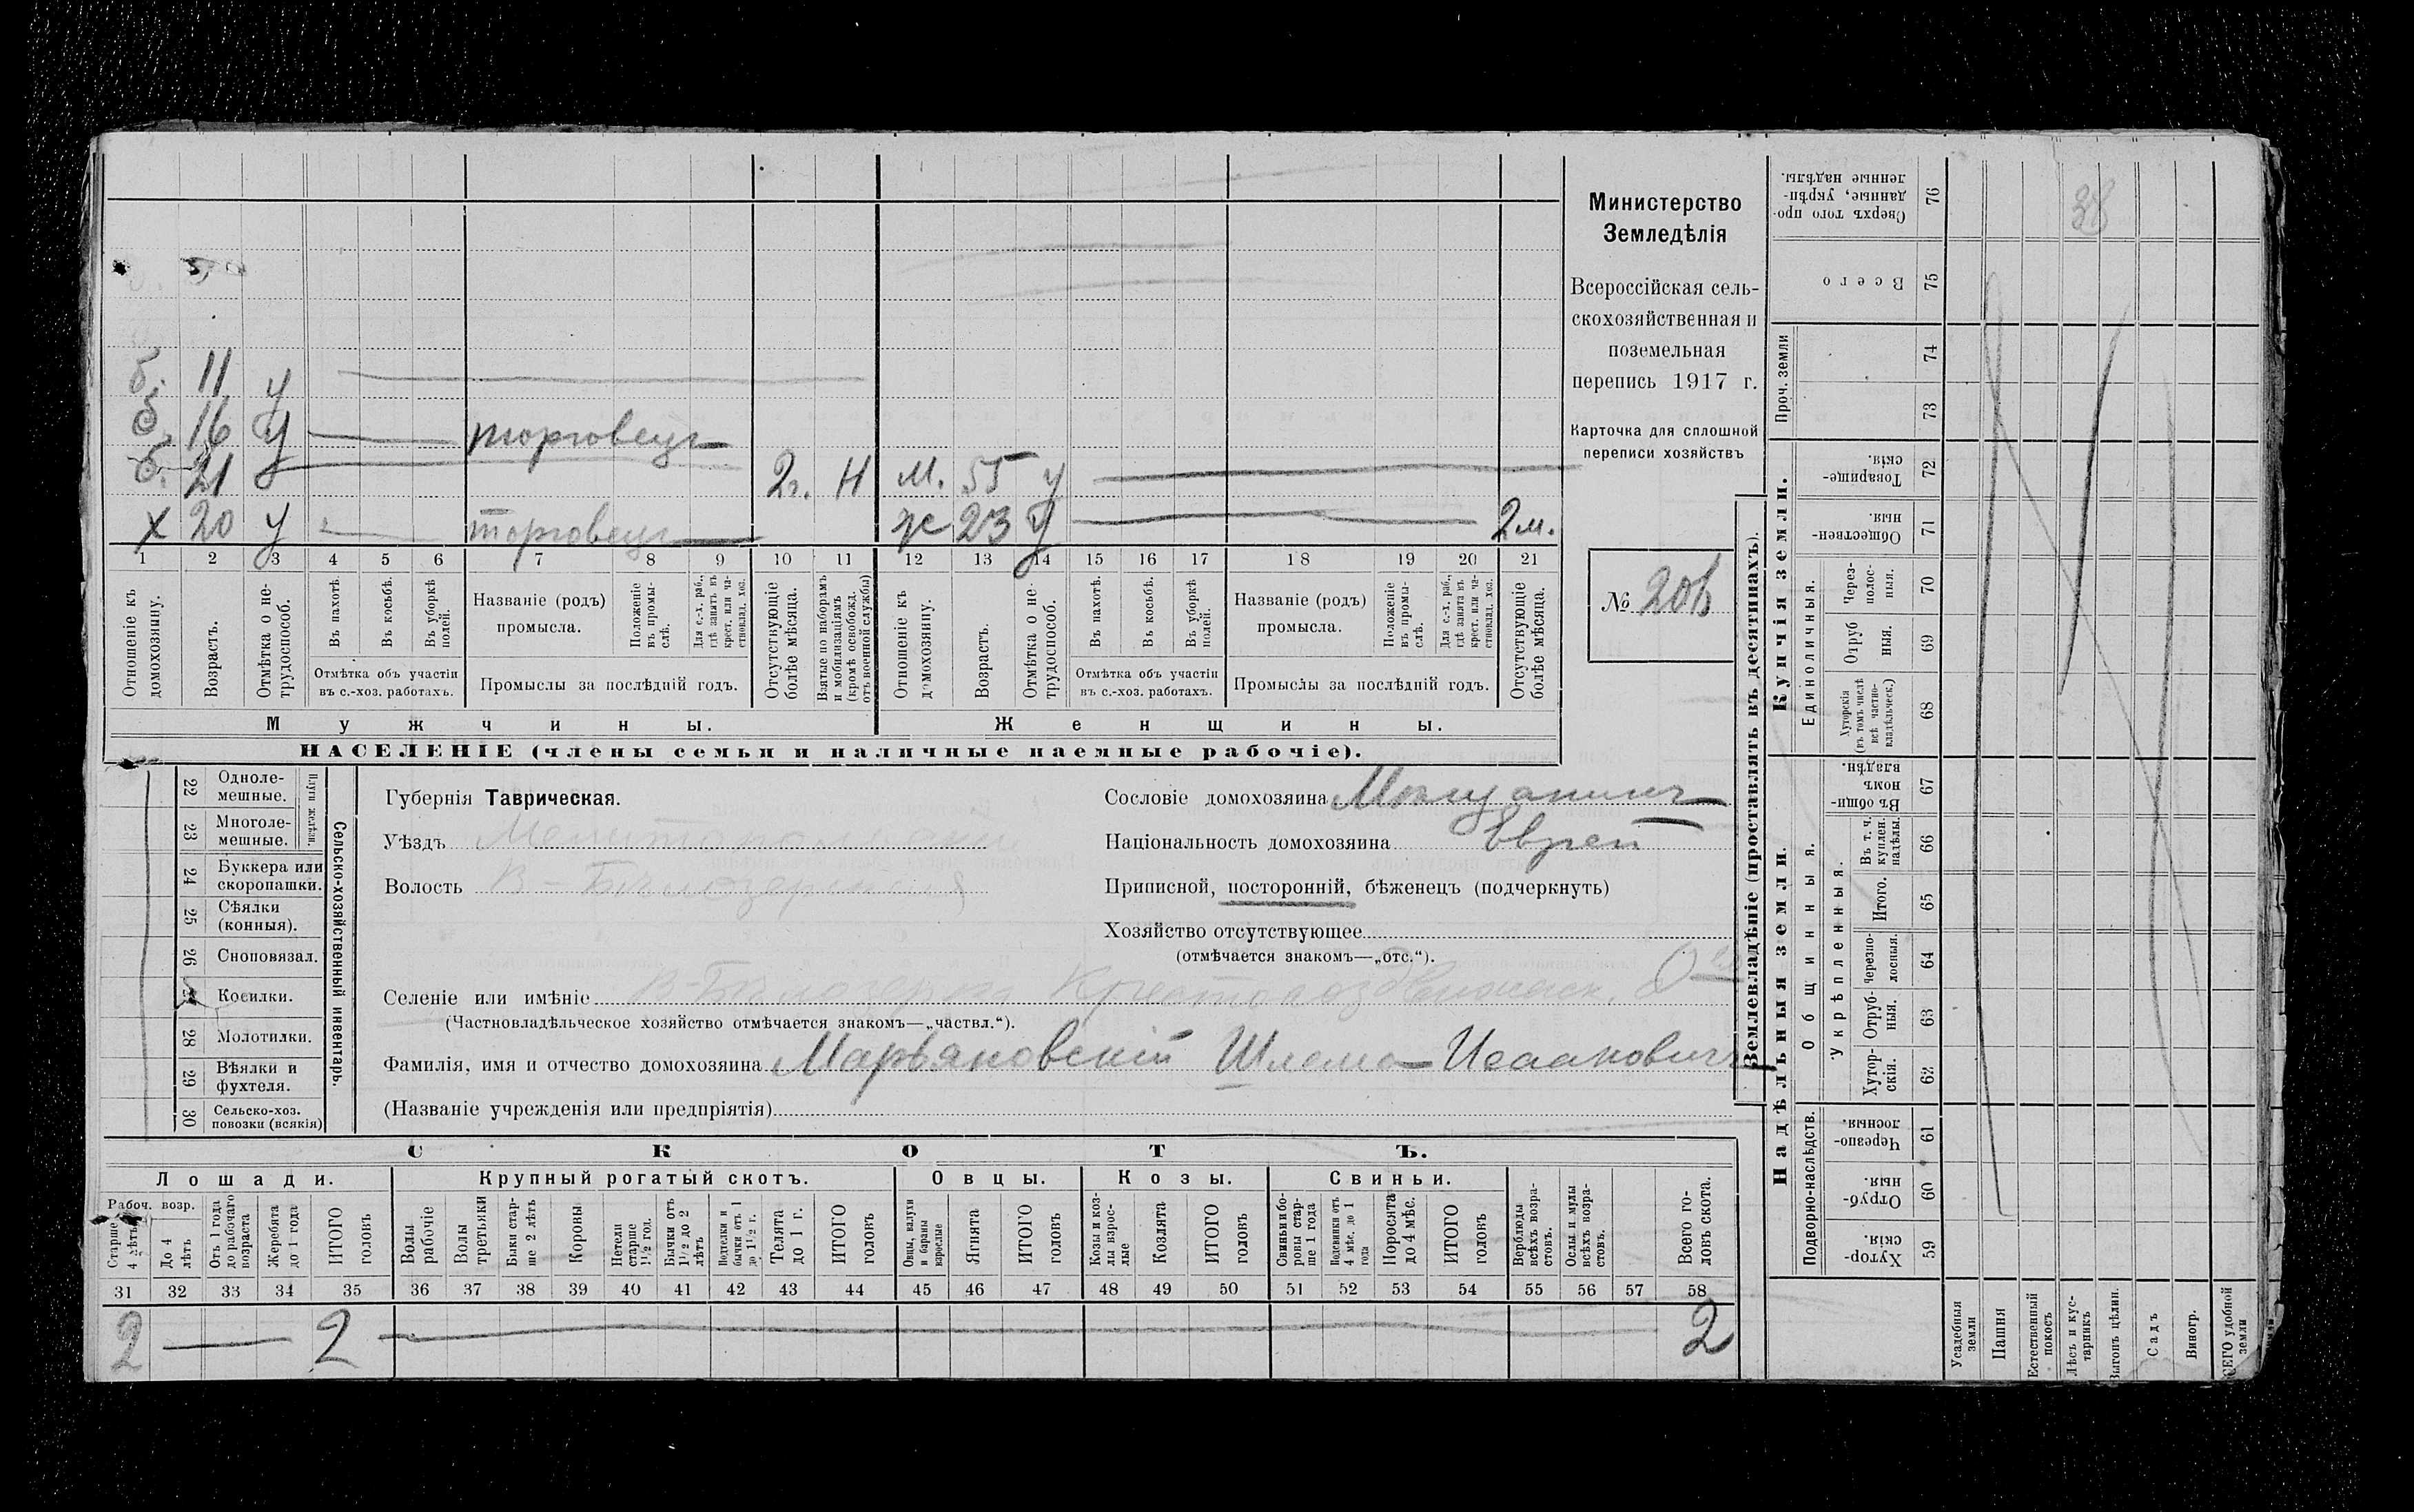 38
Министерство
Земледѣлія
Всероссійская сель-
скохозяйственная и
поземельная
перепись 1917 г.
Карточка для сплошной
переписи хозяйствъ
№ 206
б. 11 у
б. 16 у торговецъ
б. 21 у 2г. Н м. 55 у
х 20 у торговецъ ж 23 у 2м.
1 2 3 4 5 6 7 8 9 10 11 12 13 14 15 16 17 18 19 20 21
Отношеніе къ домохозяину.
Возрастъ.
Отмѣтка о не-трудоспособ.
Въ пахотѣ.
Въ косьбѣ.
Въ уборкѣ полей.
Отмѣтка объ участіи
въ с.-хоз. работахъ.
Названіе (родъ)
промысла.
Положеніе въ промы-слѣ.
Для с.-х. раб., гдѣ занятъ въ крест. или ча-стновлад. хоз.
Промыслы за послѣдній годъ.
Отсутствующіе болѣе мѣсяца.
Взятые по наборамъ и мобилизаціямъ (кромѣ освобожд. отъ военной службы)
Отношеніе къ домохозяину.
Возрастъ.
Отмѣтка о не-трудоспособ.
Въ пахотѣ.
Въ косьбѣ.
Въ уборкѣ полей.
Отмѣтка объ участіи
въ с.-хоз. работахъ.
Названіе (родъ)
промысла.
Положеніе въ промы-слѣ.
Для с.-х. раб., гдѣ занята въ крест. или ча-стновлад. хоз.
Промыслы за послѣдній годъ.
Отсутствующіе болѣе мѣсяца.
Мужчины. Женщины.
НАСЕЛЕНІЕ (члены семьи и наличные наемные рабочіе).
Сельско-хозяйственный инвентарь.
Плуги желѣзн.
22 Одноле-мешные.
23 Многоле-мешные.
24 Буккера или скоропашки.
25 Сѣялки (конныя).
26 Сноповязал.
Косилки.
28 Молотилки.
29 Вѣялки и фухтеля.
30 Сельско-хоз. повозки (всякія)
Губернія Таврическая.
Уѣздъ Мелитопольскій
Волость В-Бѣлозерская
Сословіе домохозяина Мѣщанинъ
Національность домохозяина Еврей
Приписной, посторонній, бѣженецъ (подчеркнуть)
Хозяйство отсутствующее
(отмѣчается знакомъ—„отс.“).
Селеніе или имѣніе В-Бѣлозерка Крестовоздвиженск.
(Частновладѣльческое хозяйство отмѣчается знакомъ—„частвл.“).
Фамилія, имя и отчество домохозяина Марьяновскій Шлема Исааковичъ
(Названіе учрежденія или предпріятія)
СКОТЪ.
Лошади. Крупный рогатый скотъ. Овцы. Козы. Свиньи.
Рабоч. возр.
Старше 4 лѣтъ
До 4 лѣтъ
Отъ 1 года до рабочаго возраста
Жеребята до 1 года
ИТОГО головъ
Волы рабочіе
Волы третьяки
Быки стар-ше 2 лѣтъ
Коровы
Нетели старше 1½ год.
Бычки отъ 1½ до 2 лѣтъ
Подтелки и бычки отъ 1 до 1½ г.
Телята до 1 г.
ИТОГО головъ
Овцы, валухи и бараны взрослые
Ягнята
ИТОГО головъ
Козы и коз-лы взрос-лые
Козлята
ИТОГО головъ
Свиньи и бо-ровы стар-ше 1 года
Подсвинки отъ 4 мѣс. до 1 года
Поросята до 4 мѣс.
ИТОГО головъ
Верблюды всѣхъ возра-стовъ.
Ослы и мулы всѣхъ возра-стовъ.
Всего го-ловъ скота.
31 32 33 34 35 36 37 38 39 40 41 42 43 44 45 46 47 48 49 50 51 52 53 54 55 56 57 58
2 2 2
Землевладѣніе (проставлять въ десятинахъ).
Надѣльныя земли. Купчія земли.
Подворно-наслѣдств.
Общинныя.
Укрѣпленныя.
Единоличныя.
Проч. земли
Хутор-скія. 59
Отруб-ныя. 60
Черезпо-лосныя. 61
Хутор-скія. 62
Отруб-ныя. 63
Черезпо-лосныя. 64
Итого. 65
Въ т. ч. куплен. надѣлы. 66
Въ общин-номъ владѣн. 67
Хуторскія (въ томъ числѣ всѣ частно-владѣльческ.) 68
Отруб ныя. 69
Через-полос-ныя. 70
Обществен-ныя. 71
Товарище-скія. 72
73
74
Всего 75
Сверхъ того про-данные, укрѣп-ленные надѣлы. 76
Усадебныя земли
Пашня
Естественный покосъ
Лѣсъ и кус-тарникъ
Выгонъ цѣлин.
Садъ
Виногр.
ВСЕГО удобной земли